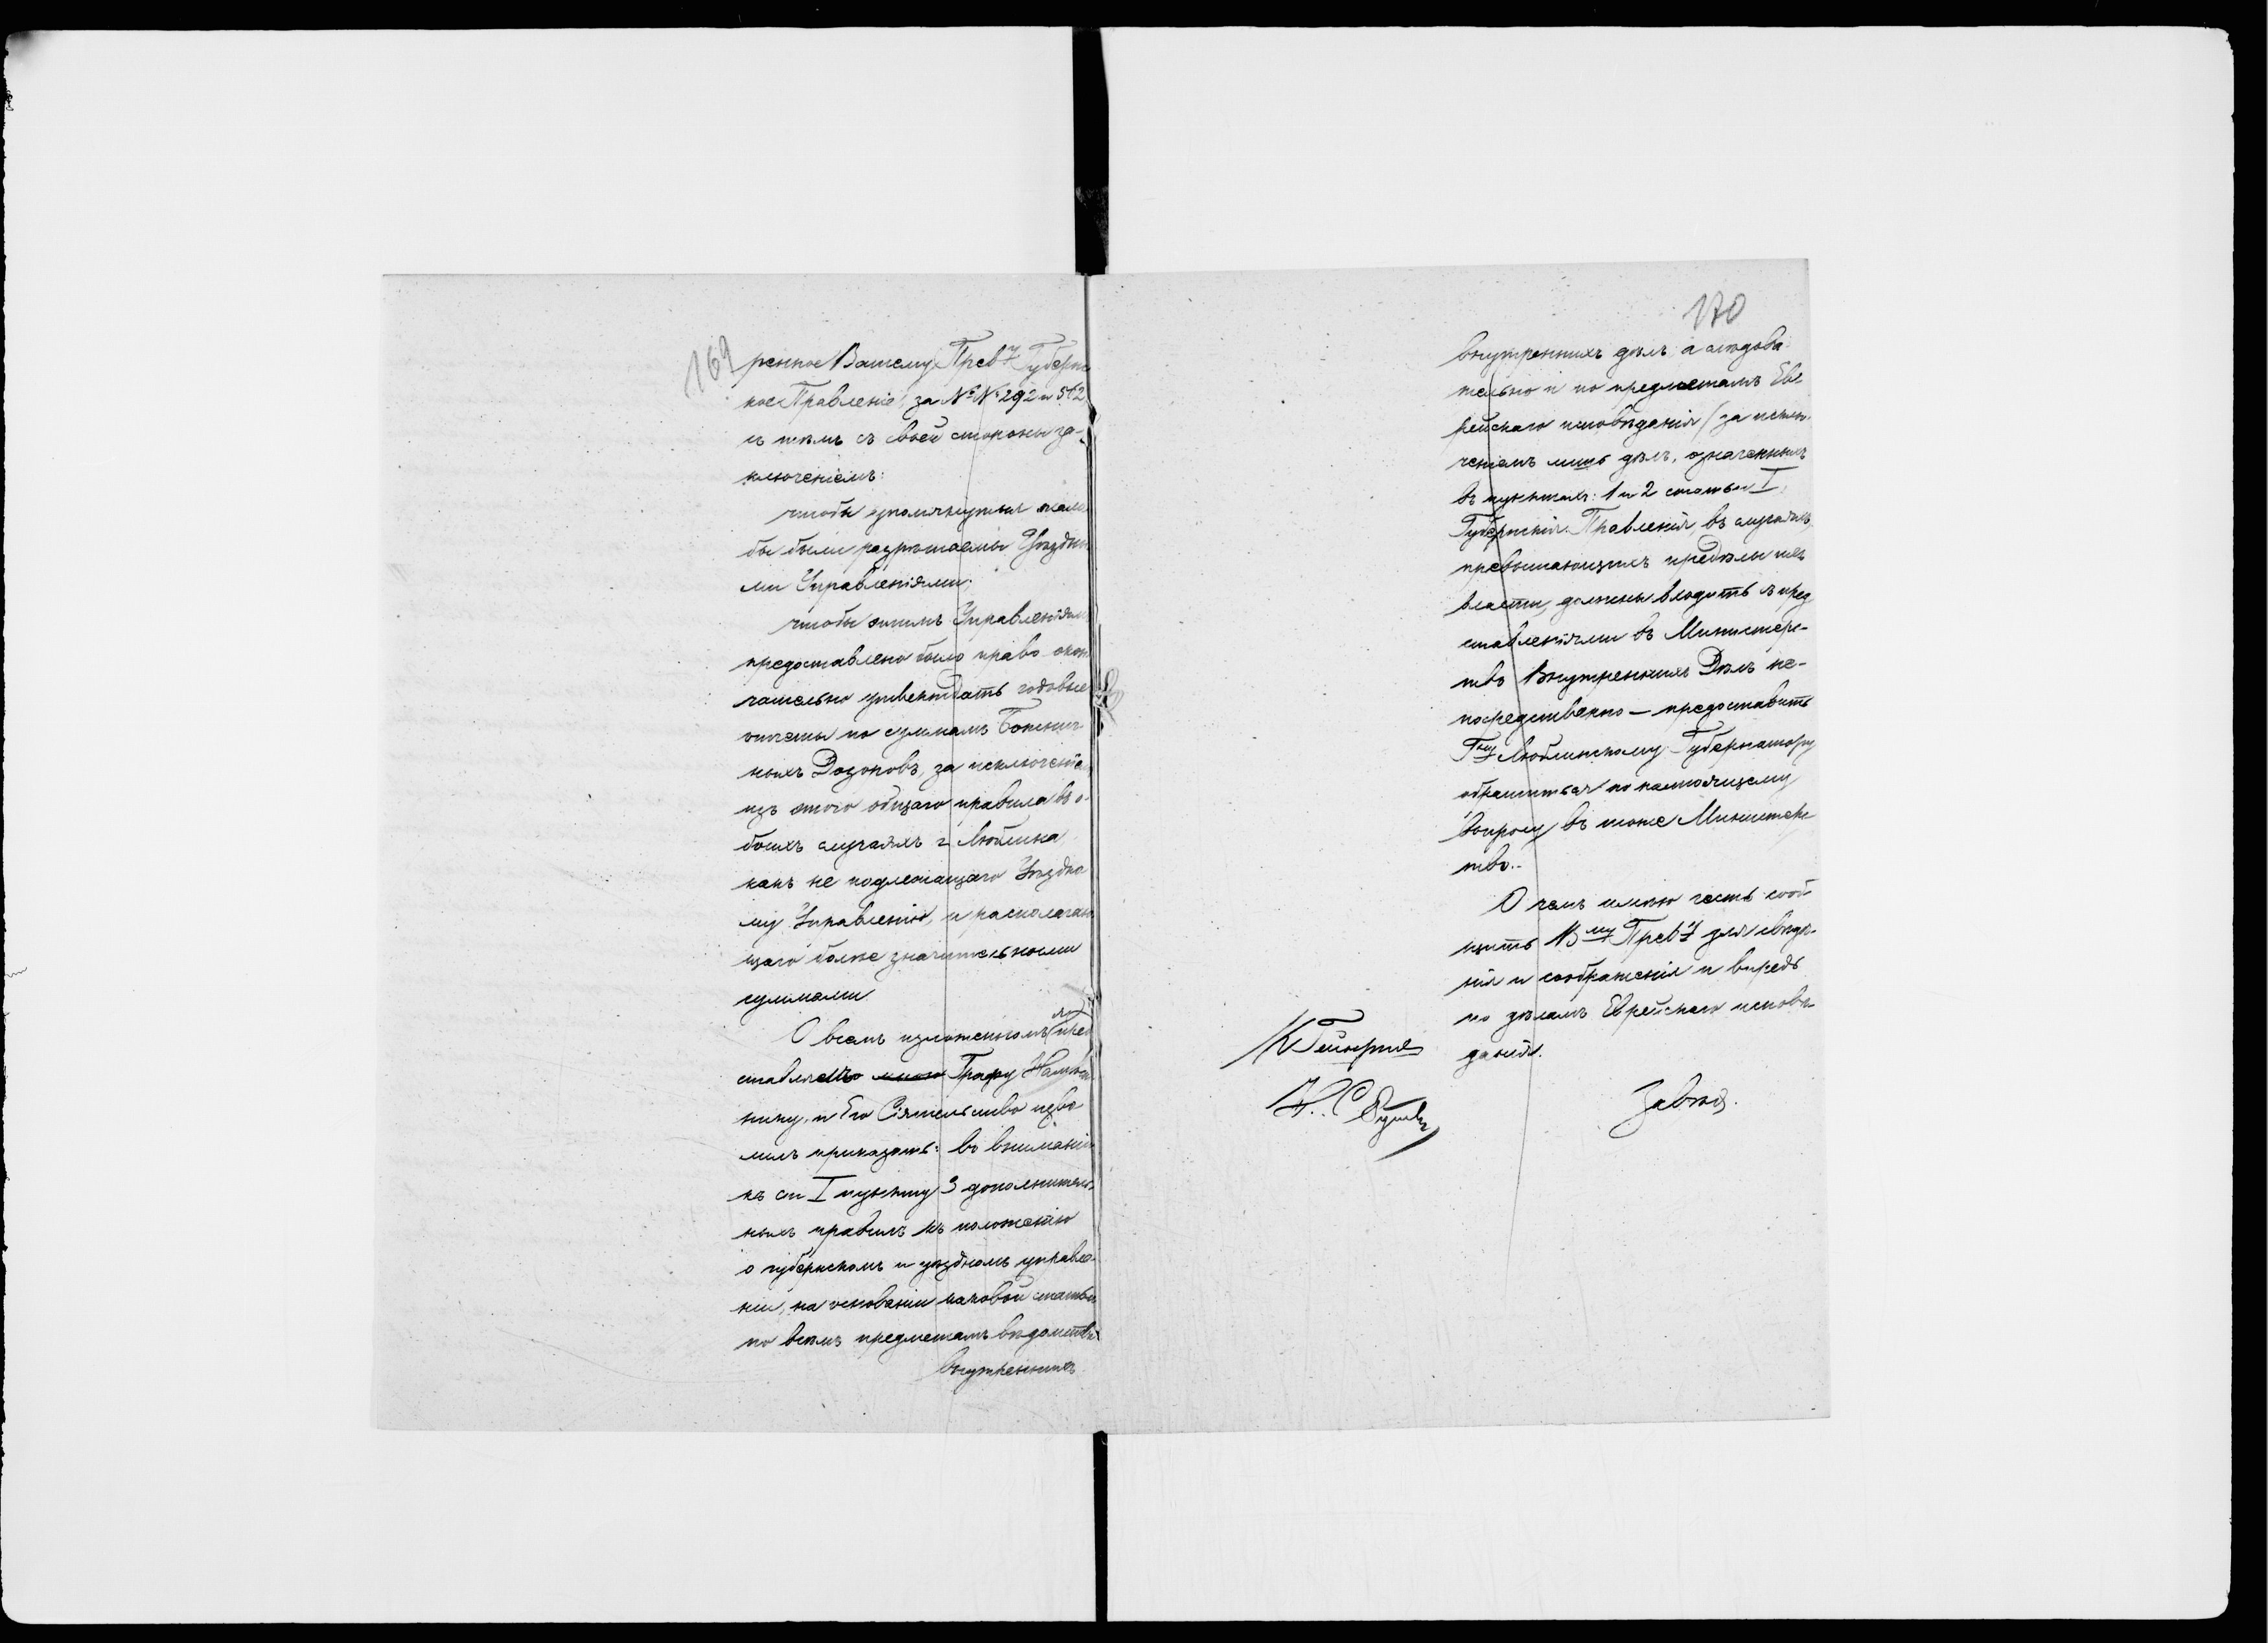 169
ренное Вашему Прев. Губерн
ское Правленіе, за №№ 292 и 562
съ тѣмъ съ своей стороны за-
ключеніемъ:
чтобы упомянутыя жало
бы были разрѣшаемы Уѣздны
ми Управленіями;
чтобы симъ Управленіямъ
предоставлено было право окон
чательно утверждать годовые
отчеты по суммамъ Божнич
ныхъ Дозоровъ, за исключеніе
изъ этого общаго правила въ о-
боихъ случаяхъ г. Люблина
какъ не подлежащаго Уѣздно
му Управленію, и располагаю
щаго болѣе значительными
суммами
О всемъ изложенномъ пред
ставлено Графу Намѣст
нику, и Его Сіятельство изво
лилъ приказать: въ вниманіи
къ ст I пункту 3 дополнитель-
ныхъ правилъ къ положенію
о губернскомъ и уѣздномъ управле-
ніи, на основаніи каковой статьи
по всѣмъ предметамъ вѣдомства
внутреннихъ
170
внутреннихъ дѣлъ, а слѣдова
тельно и по предметамъ Ев-
рейскаго исповѣданія (за исклю-
ченіемъ лишь дѣлъ, означенныхъ
въ пунктахъ: 1 и 2 статьи I,
Губернскія Правленія, въ случаяхъ,
превышающихъ предѣлы ихъ
власти, должны входить съ пред
ставленіями въ Министерс-
тво Внутреннихъ Дѣлъ не-
посредственно — предоставить
Гну Люблинскому Губернатору
обратиться по настоящему
вопросу въ тоже Министерс
тво.
О чемъ имѣю честь сооб
щить Вму Прев. для свѣдѣ-
нія и соображенія и впредь
по дѣламъ Еврейскаго исповѣ-
данія.
Завѣд.